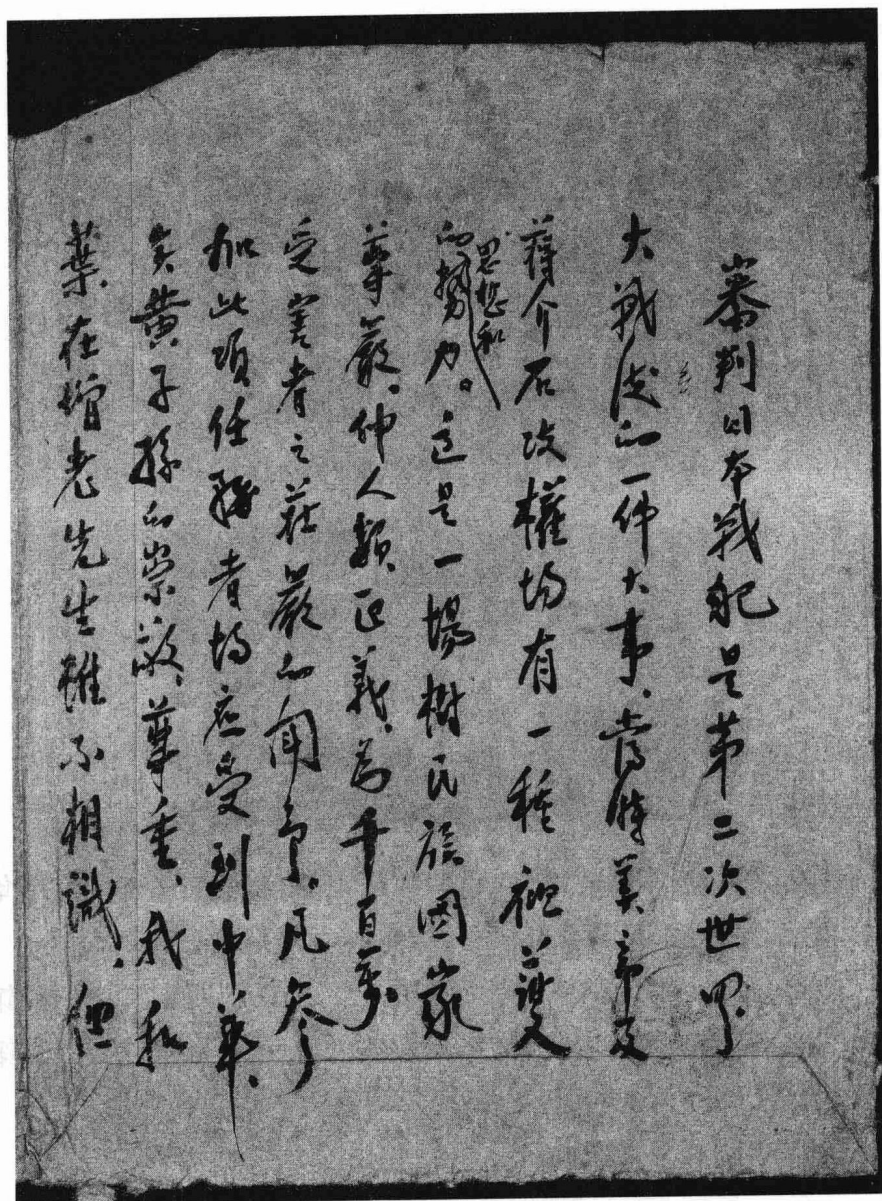 審判日本战犯是第二次世界
大战后的一件大事、當時美帝及
蔣介石政權均有一种袒護
的思想和勢力。這是一場樹民族國家
尊嚴、伸人類正義、為千百萬
受害者之莊嚴的闘争。凡参
加此項任務者均应受到中华、
炎黄子孫的崇敬、尊重、我和
葉在增老先生雖不相識、但